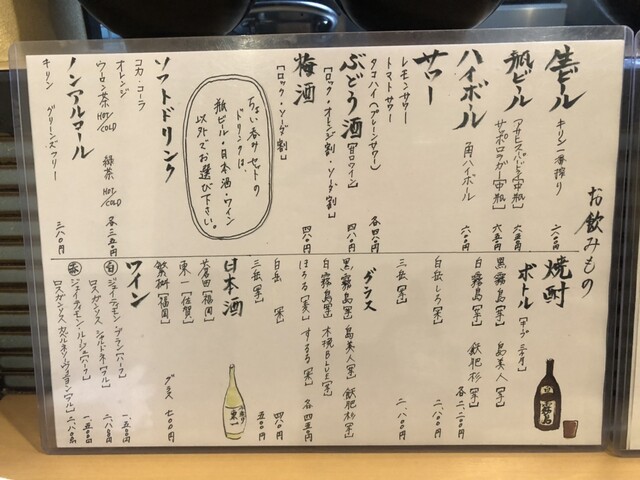 お飲みもの
生ビール
キリン一番搾り 六〇〇円
瓶ビール
アサヒスーパードライ[中瓶] 六五〇円
サッポロラガー[中瓶] 六五〇円
ハイボール
角ハイボール 六〇〇円
サワー
レモンサワー
トマトサワー
タコハイ(プレーンサワー) 各四八〇円
ぶどう酒[甘口ワイン] 四八〇円
[ロック・オレンジ割・ソーダ割]
梅酒 四八〇円
[ロック・ソーダ割]
ちょい呑みセットの
ドリンクは、
瓶ビール・日本酒・ワイン
以外でお選び下さい。
ソフトドリンク
コカ・コーラ
オレンジ
ウーロン茶 HOT/COLD 緑茶 HOT/COLD 各三五〇円
ノンアルコール
キリン グリーンズフリー 三八〇円
焼酎
ボトル[キープ 三ヶ月]
黒霧島[芋] 島美人[芋]
白霧島[芋] 飫肥杉[芋] 各二、二〇〇円
白岳しろ[米] 二、八〇〇円
三岳[芋] 二、八〇〇円
グラス
黒霧島[芋] 島美人[芋] 飫肥杉[芋]
白霧島[芋] 木挽BLUE[芋]
ほろる[麦] するる[米] 各四五〇円
白岳 [米] 四八〇円
三岳[芋] 五〇〇円
日本酒
若倉田[福岡]
東一[佐賀]
繁桝[福岡] グラス 七〇〇円
ワイン
白 ジェイティモン・ブラン[ハーフ] 一、五〇〇円
ロスガンソス シャルドネ[フル] 二、八〇〇円
赤 ジェイティモン・ルージュ[ハーフ] 一、五〇〇円
ロスガンソス カベルネ・ソーヴィニヨン[フル] 二、八〇〇円
霧島
東一